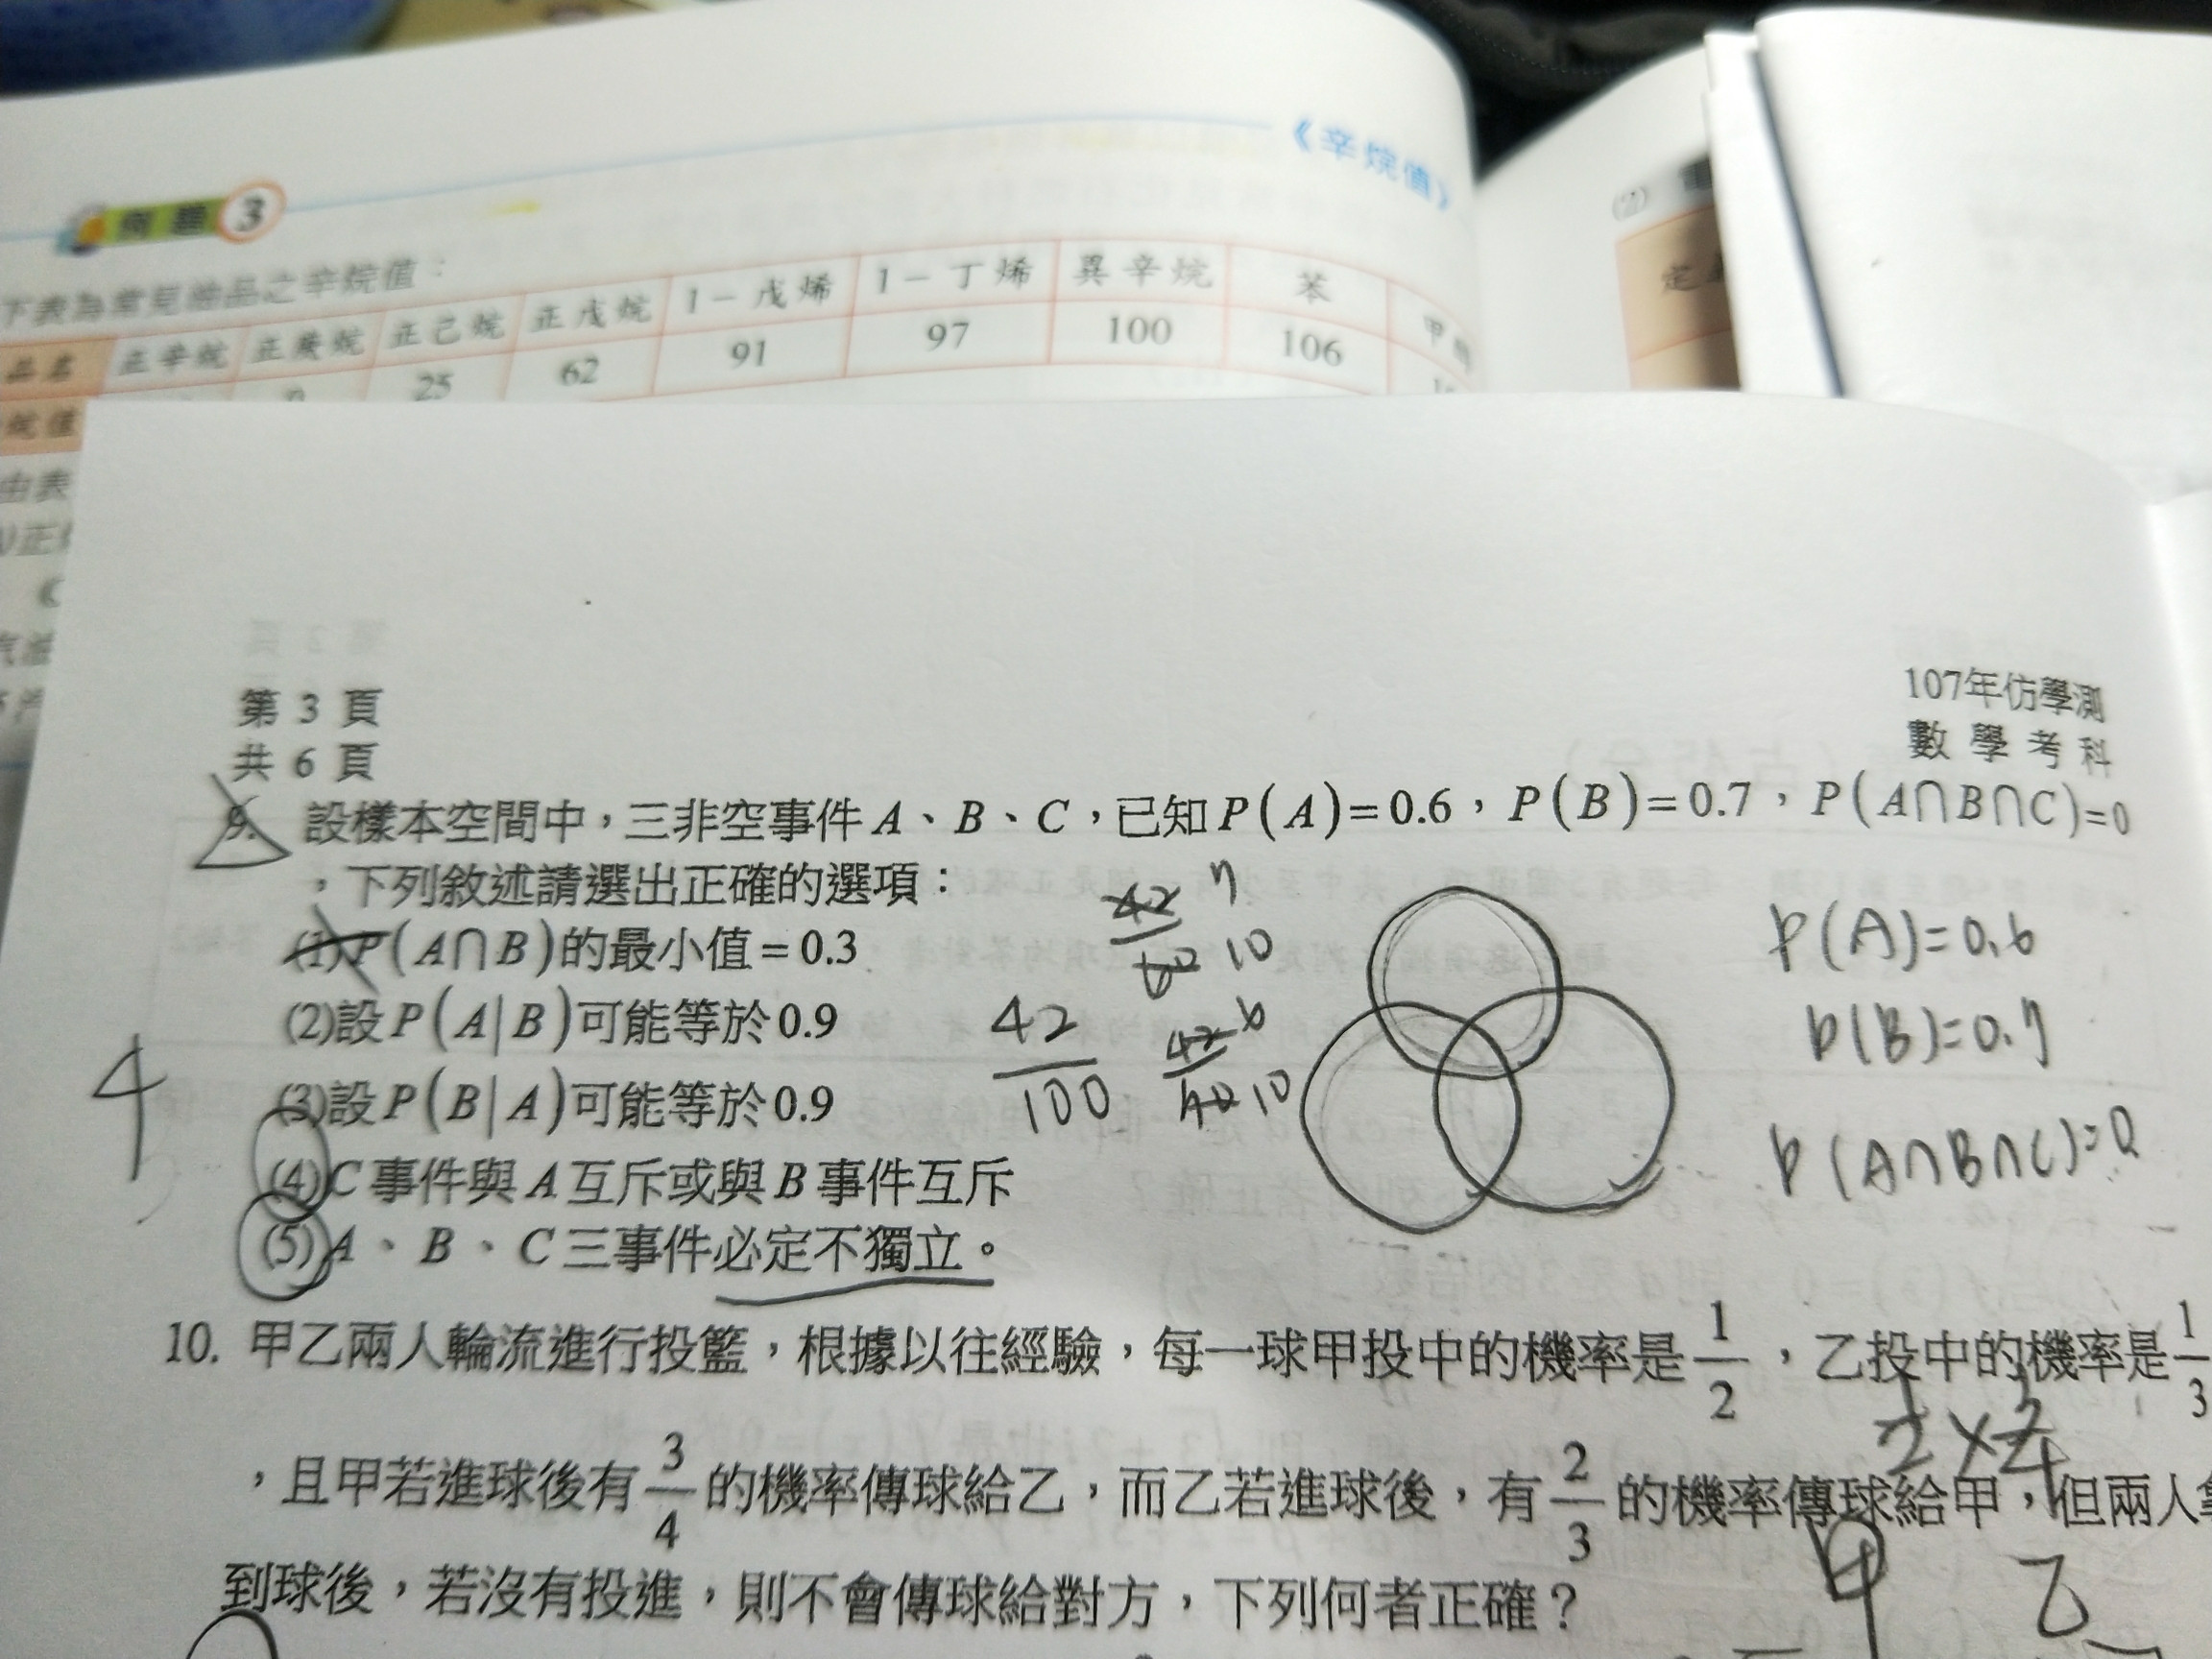 《辛烷值》
例題 3
下表為常見油品之辛烷值：
品名 正辛烷 正庚烷 正己烷 正戊烷 1－戊烯 1－丁烯 異辛烷 苯 甲
烷值 0 25 62 91 97 100 106
由表
(2)
第 3 頁
共 6 頁
107年仿學測
數 學 考 科
9. 設樣本空間中，三非空事件 A、B、C，已知 P(A)=0.6，P(B)=0.7，P(A∩B∩C)=0
，下列敘述請選出正確的選項：
(1) P(A∩B)的最小值=0.3
(2)設 P(A|B)可能等於 0.9
(3)設 P(B|A)可能等於 0.9
(4) C 事件與 A 互斥或與 B 事件互斥
(5) A、B、C 三事件必定不獨立。
4
42/60 7/10
42/100
42/70 6/10
P(A)=0.6
P(B)=0.7
P(A∩B∩C)=0
10. 甲乙兩人輪流進行投籃，根據以往經驗，每一球甲投中的機率是 1/2，乙投中的機率是 1/3
，且甲若進球後有 3/4 的機率傳球給乙，而乙若進球後，有 2/3 的機率傳球給甲，但兩人
到球後，若沒有投進，則不會傳球給對方，下列何者正確？
甲 乙